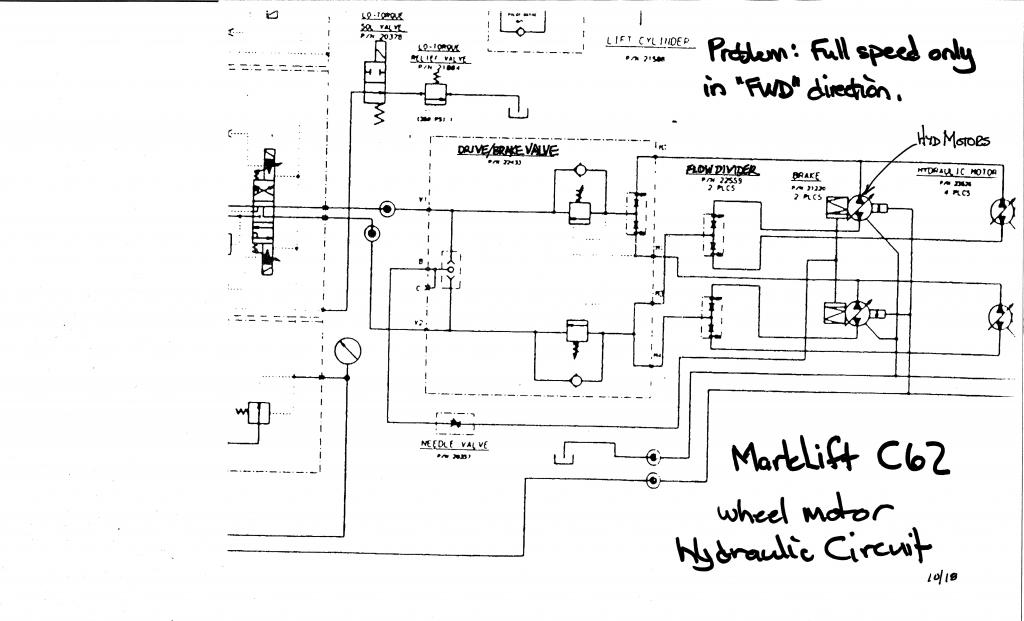 LO-TORQUE
SOL VALVE
P/N 20378
LO-TORQUE
RELIEF VALVE
P/N 21884
LIFT CYLINDER
P/N 21588
Problem: Full speed only
in "FWD" direction.
DRIVE/BRAKE VALVE
P/N 22433
HYD MOTORS
FLOW DIVIDER
P/N 22559
2 PLCS
BRAKE
P/N 21220
2 PLCS
HYDRAULIC MOTOR
4 PLCS
V1
B
C
V2
NEEDLE VALVE
P/N 20357
MarkLift C62
wheel motor
Hydraulic Circuit
10/18